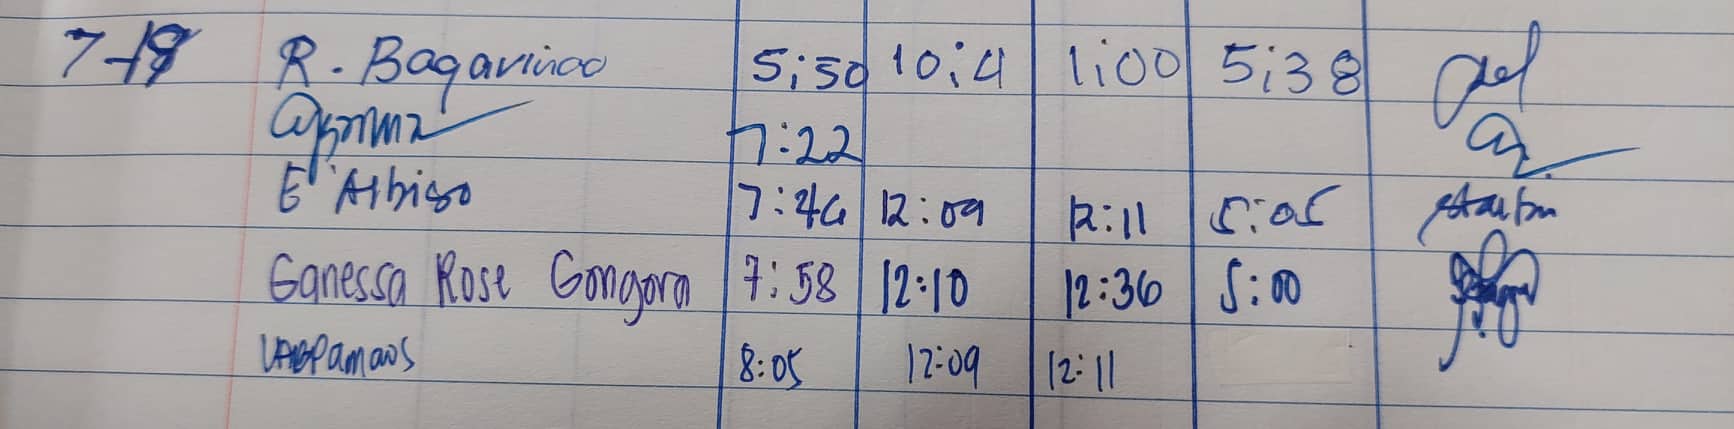 7-19 R. Bagavinoo 5:50 10:4 1:00 5:38
7:22
E Albiso 7:46 12:09 12:11 5:05
Ganessa Rose Gongora 7:58 12:10 12:36 5:00
8:05 12:09 12:11